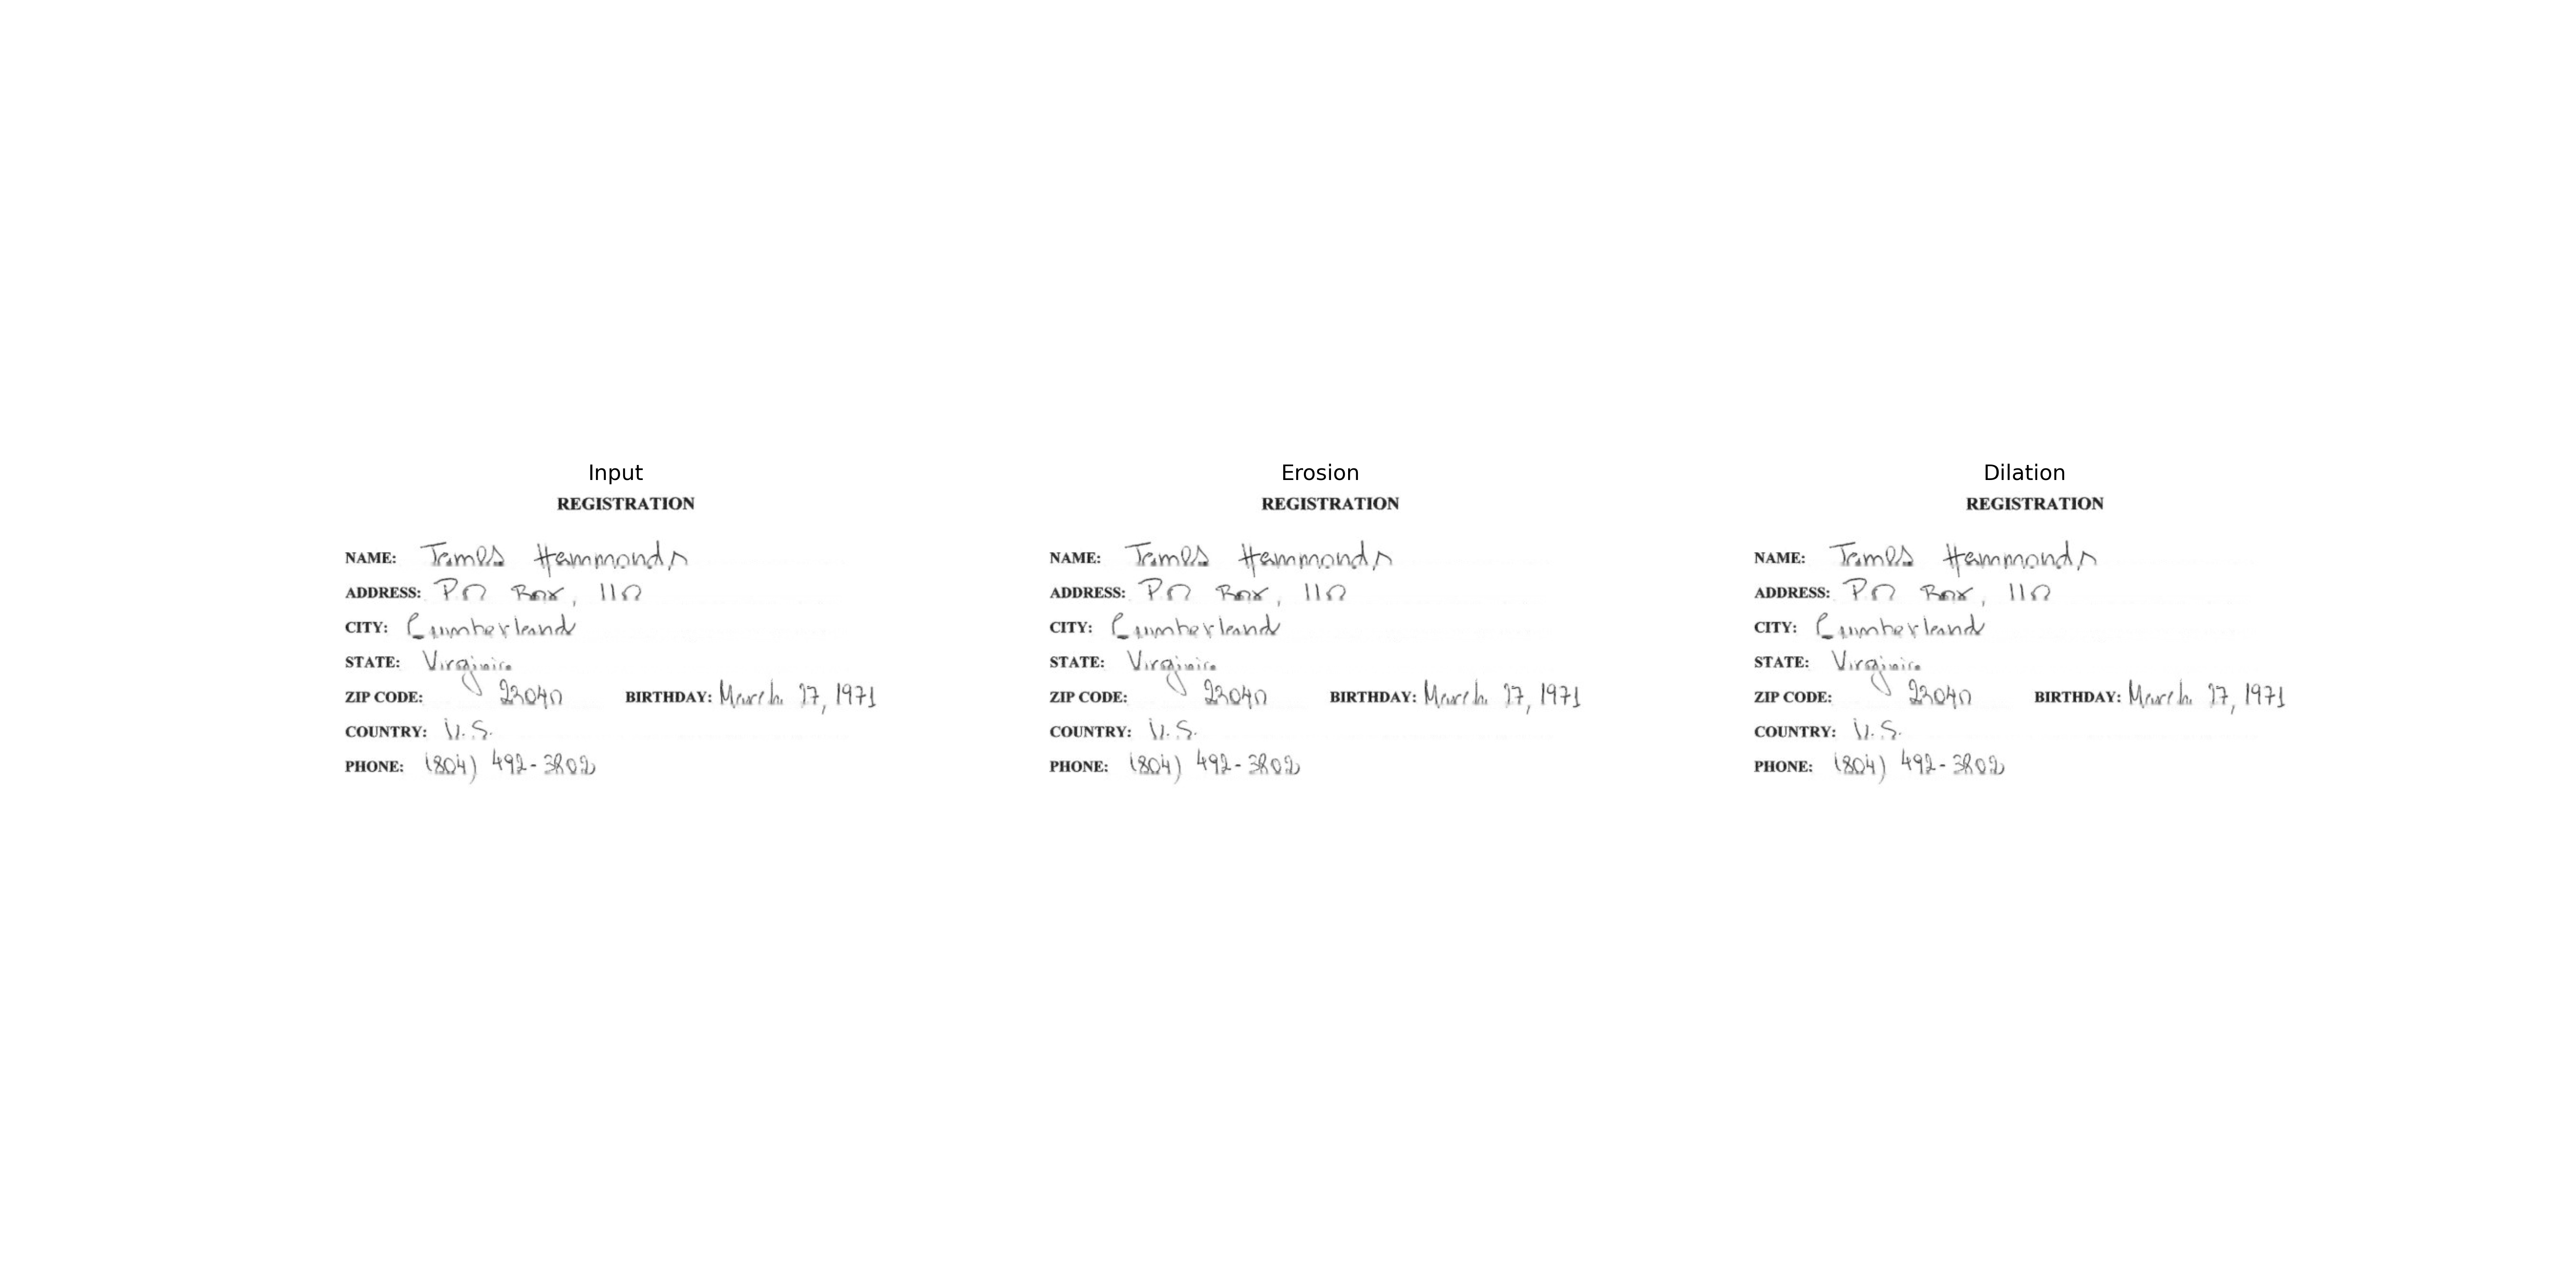 Input
REGISTRATION
NAME: James Hammonds
ADDRESS: PO Box, 110
CITY: Cumberland
STATE: Virginia
ZIP CODE: 23040 BIRTHDAY: March 17, 1971
COUNTRY: U.S.
PHONE: (804) 492-3802
Erosion
REGISTRATION
NAME: James Hammonds
ADDRESS: PO Box, 110
CITY: Cumberland
STATE: Virginia
ZIP CODE: 23040 BIRTHDAY: March 17, 1971
COUNTRY: U.S.
PHONE: (804) 492-3802
Dilation
REGISTRATION
NAME: James Hammonds
ADDRESS: PO Box, 110
CITY: Cumberland
STATE: Virginia
ZIP CODE: 23040 BIRTHDAY: March 17, 1971
COUNTRY: U.S.
PHONE: (804) 492-3802